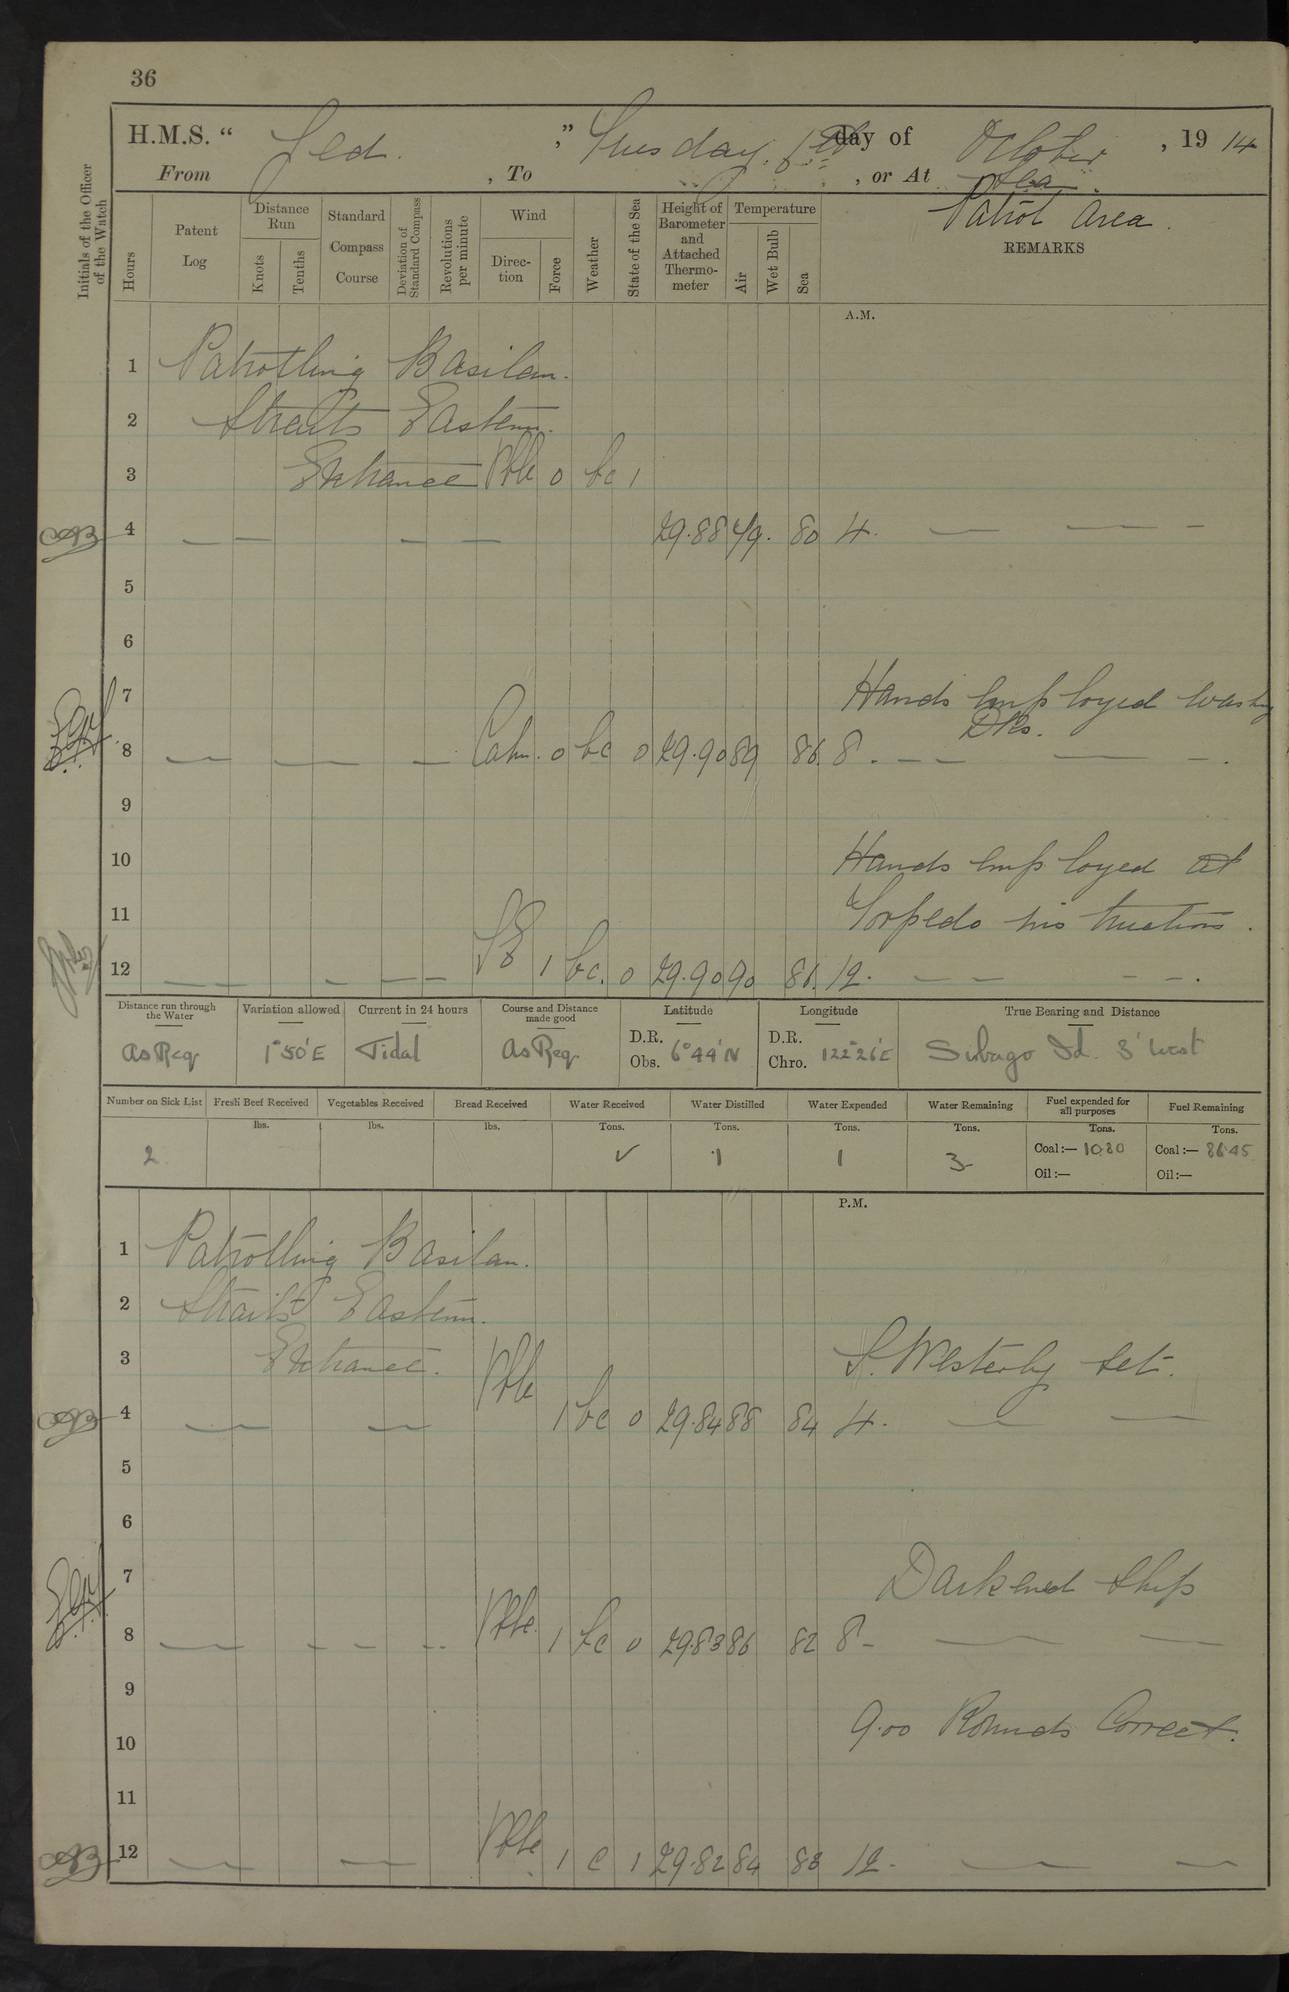 36
H.M.S. " Jed. " Tuesday. day of October, 19 14
From , To , or At Sea.
Patrol Area.
Initials of the Officer of the Watch
Hours
Patent Log
Distance Run
Knots
Tenths
Standard Compass Course
Deviation of Standard Compass
Revolutions per minute
Wind
Direction
Force
Weather
State of the Sea
Height of Barometer and Attached Thermometer
Temperature
Air
Wet Bulb
Sea
REMARKS
A.M.
1 Patrolling Basilan.
2 Straits Eastern.
3 Entrance Vble 0 bc 1
4 29.88 80 4.
5
6
7 Hands employed washing
Dks.
8 Calm. 0 bc 0 29.90 89 86. 8.
9
10 Hands employed at
11 Torpedo instructions.
12 SE 1 bc. 0 29.90 90 86. 12.
Distance run through the Water
Variation allowed
Current in 24 hours
Course and Distance made good
Latitude
Longitude
True Bearing and Distance
As Req. 1°50'E Tidal As Req. D.R. Obs. 6°44'N D.R. Chro. 122°26'E Sibago Id. 8' West
Number on Sick List
Fresh Beef Received
Vegetables Received
Bread Received
Water Received
Water Distilled
Water Expended
Water Remaining
Fuel expended for all purposes
Fuel Remaining
lbs. lbs. lbs. Tons. Tons. Tons. Tons. Tons. Tons.
2 ✓ 1 1 3 Coal:— 10.80 Coal:— 86.45
Oil:— Oil:—
P.M.
1 Patrolling Basilan.
2 Straits Eastern.
3 Entrance. Vble S. Westerly set.
4 1 bc 0 29.84 88 84 4.
5
6
7 Darkened Ship
8 Vble. 1 bc 0 29.83 86 82 8
9
10 9.00 Rounds Correct.
11
12 Vble 1 c 1 29.82 84 83 12.